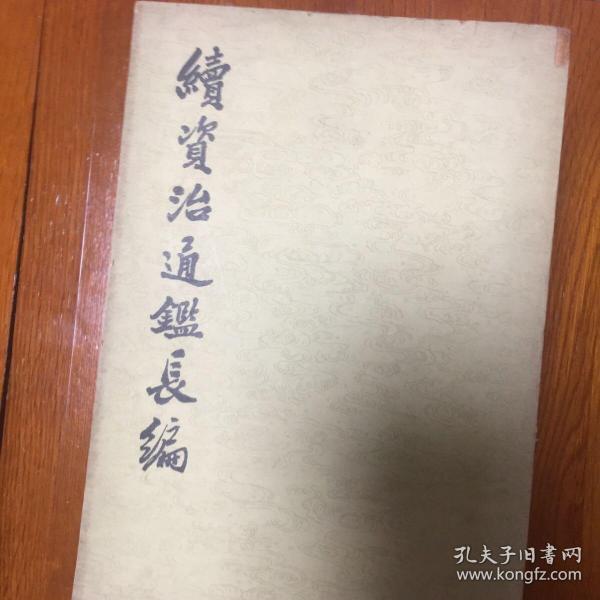 續資治通鑑長編
孔夫子旧書网
www.kongfz.com